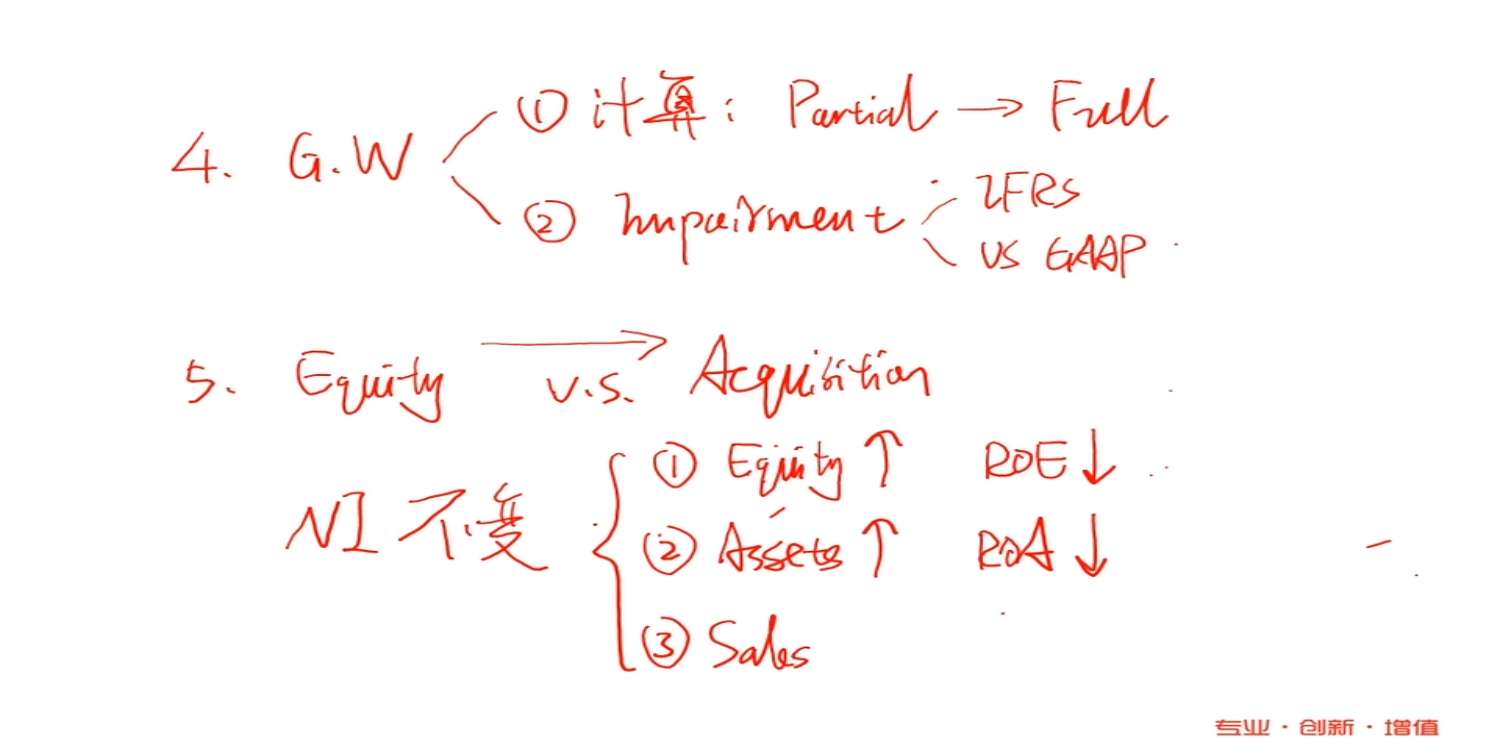 4. G.W ① 计算: Partial → Full
② Impairment IFRS
US GAAP
5. Equity → V.S. Acquisition
① Equity ↑ ROE ↓
NI 不变 ② Assets ↑ ROA ↓
③ Sales
专业·创新·增值